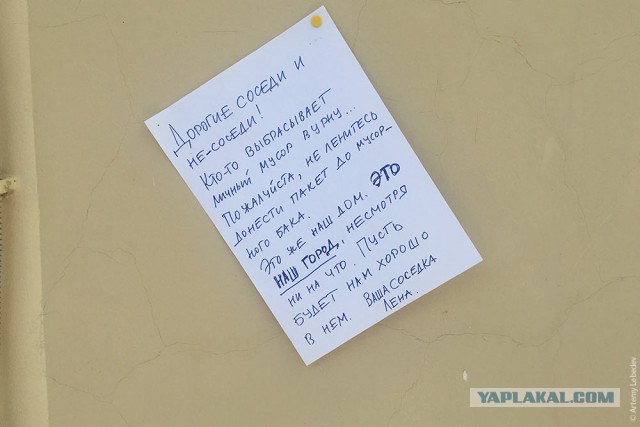 ДОРОГИЕ СОСЕДИ И
НЕ-СОСЕДИ!
КТО-ТО ВЫБРАСЫВАЕТ
ЛИЧНЫЙ МУСОР В УРНУ...
ПОЖАЛУЙСТА, НЕ ЛЕНИТЕСЬ
ДОНЕСТИ ПАКЕТ ДО МУСОР-
НОГО БАКА.
ЭТО ЖЕ НАШ ДОМ. ЭТО
НАШ ГОРОД, НЕСМОТРЯ
НИ НА ЧТО. ПУСТЬ
БУДЕТ НАМ ХОРОШО
В НЕМ. ВАША СОСЕДКА
ЛЕНА.
YAPLAKAL.COM
© Artemy Lebedev